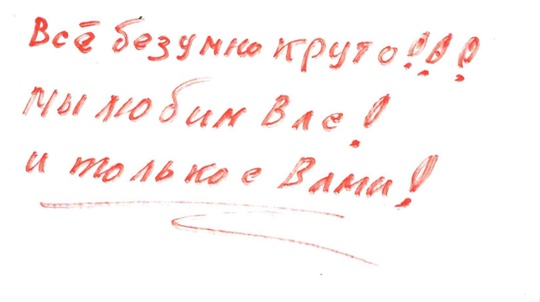 Всё безумно круто!!!
Мы любим Вас!
и только с Вами!